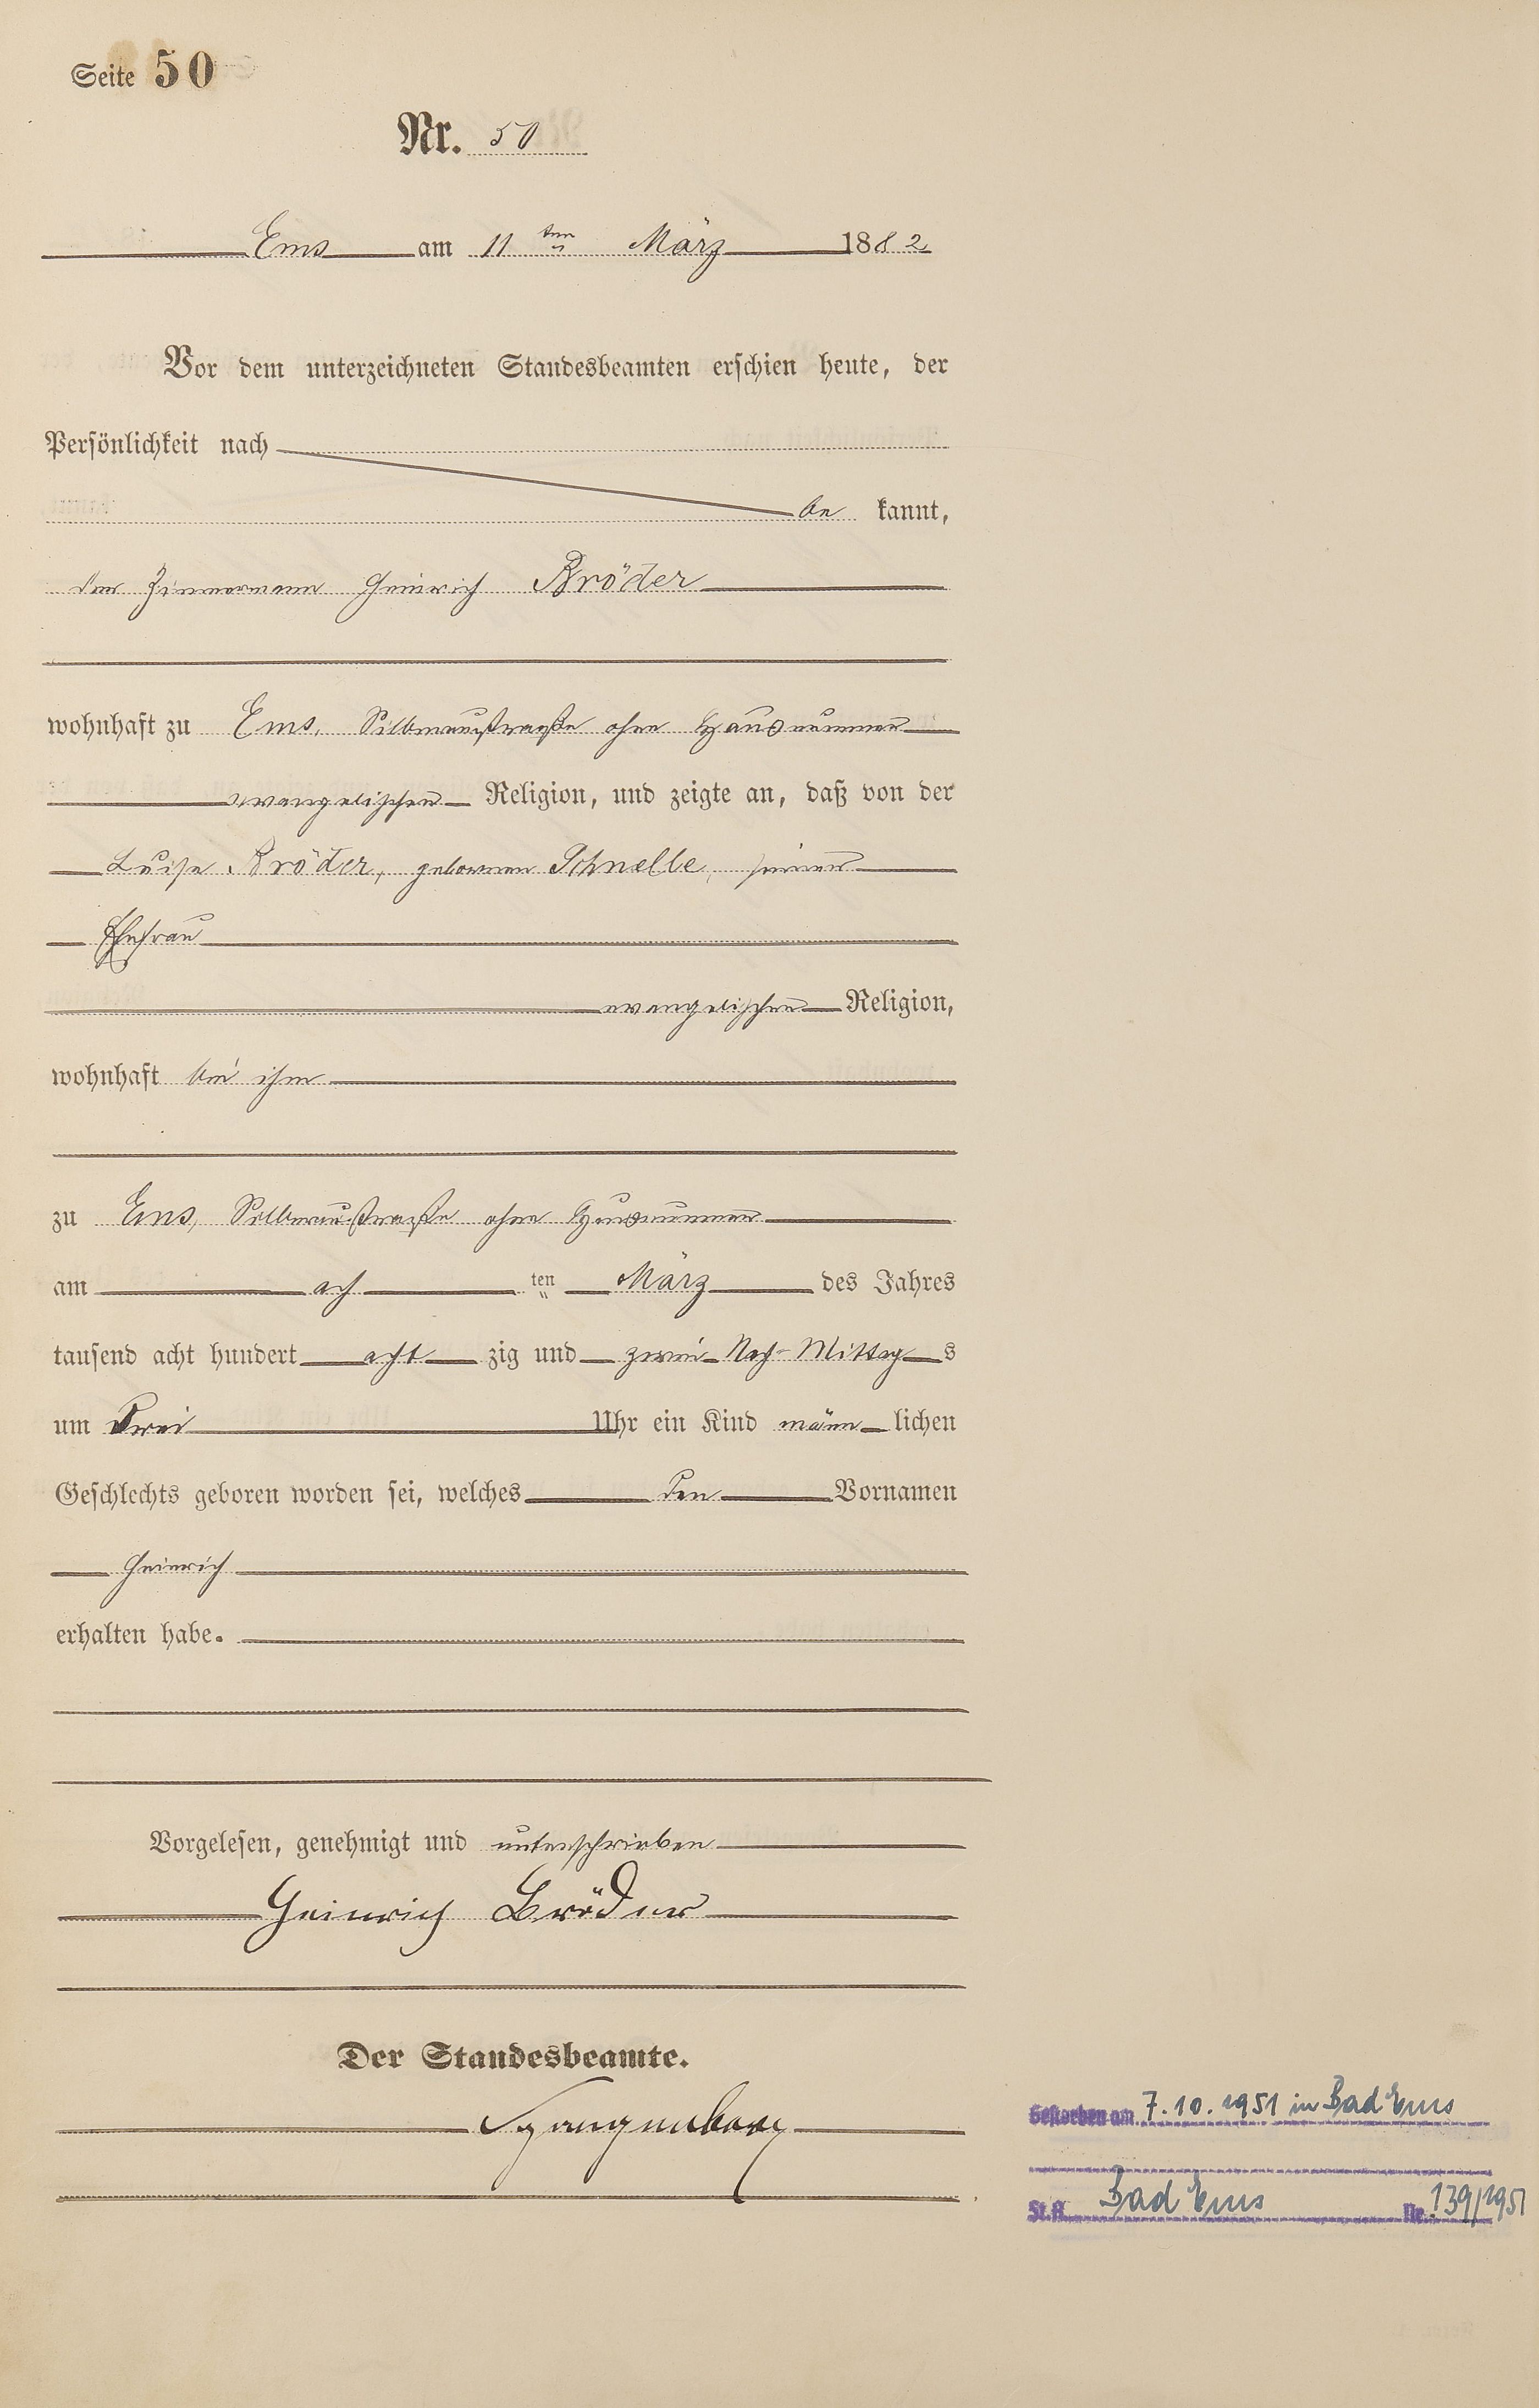 Seite 50
Nr. 50
Ems am 11ten März 1882
Vor dem unterzeichneten Standesbeamten erschien heute, der
Persönlichkeit nach
bekannt,
der Zimmermann Heinrich Bröder
wohnhaft zu Ems, Silberaustraße ohne Hausnummer
evangelischer Religion, und zeigte an, daß von der
Luise Bröder, geborenen Schnelle, seiner
Ehefrau
evangelischer Religion,
wohnhaft bei ihm
zu Ems, Silberaustraße ohne Hausnummer
am ach ten März des Jahres
tausend acht hundert acht zig und zwei Nach-Mittags
um drei Uhr ein Kind männlichen
Geschlechts geboren worden sei, welches den Vornamen
Heinrich
erhalten habe.
Vorgelesen, genehmigt und unterschrieben
Heinrich Bröder
Der Standesbeamte.
Spangenberg
Gestorben am 7.10.1951 in Bad Ems
St.A. Bad Ems Nr. 139/1951